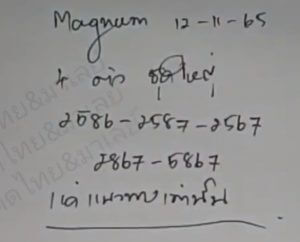 Magnum 12-11-65
4 ตัว ชุดใหญ่
2586-2587-2567
2867-5867
แค่แนวทางเท่านั้น